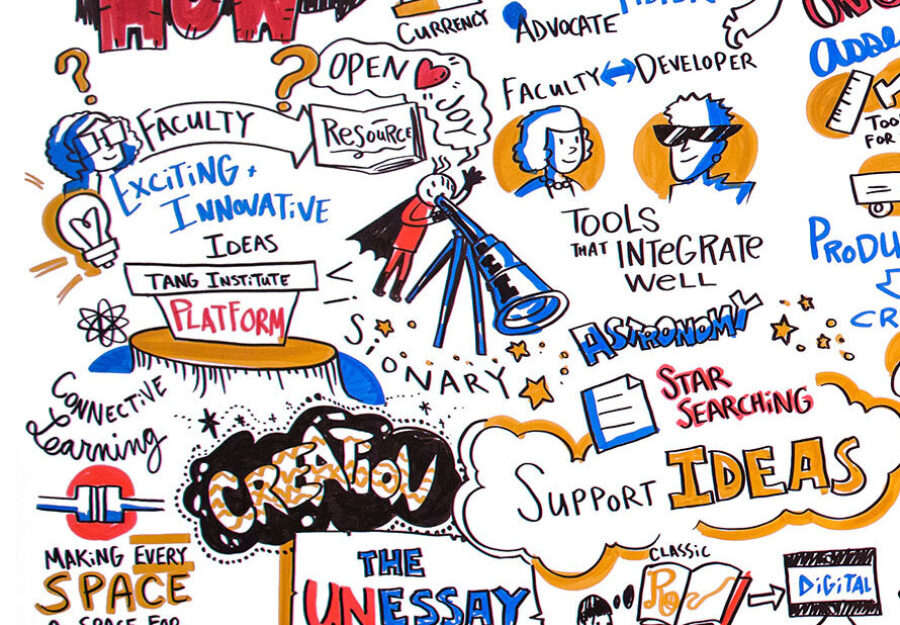 HOW
CURRENCY
ADVOCATE
ASSE
OPEN
JOY
FACULTY DEVELOPER
?
?
FACULTY
RESOURCE
TOO
FOR
EXCITING +
INNOVATIVE
IDEAS
TOOLS
THAT INTEGRATE
WELL
PRODU
CR
TANG INSTITUTE
PLATFORM
VISIONARY
ASTRONOMY
STAR
SEARCHING
CONNECTIVE
LEARNING
CREATION
SUPPORT IDEAS
MAKING EVERY
SPACE
A SPACE FOR
THE
UNESSAY
CLASSIC
DIGITAL